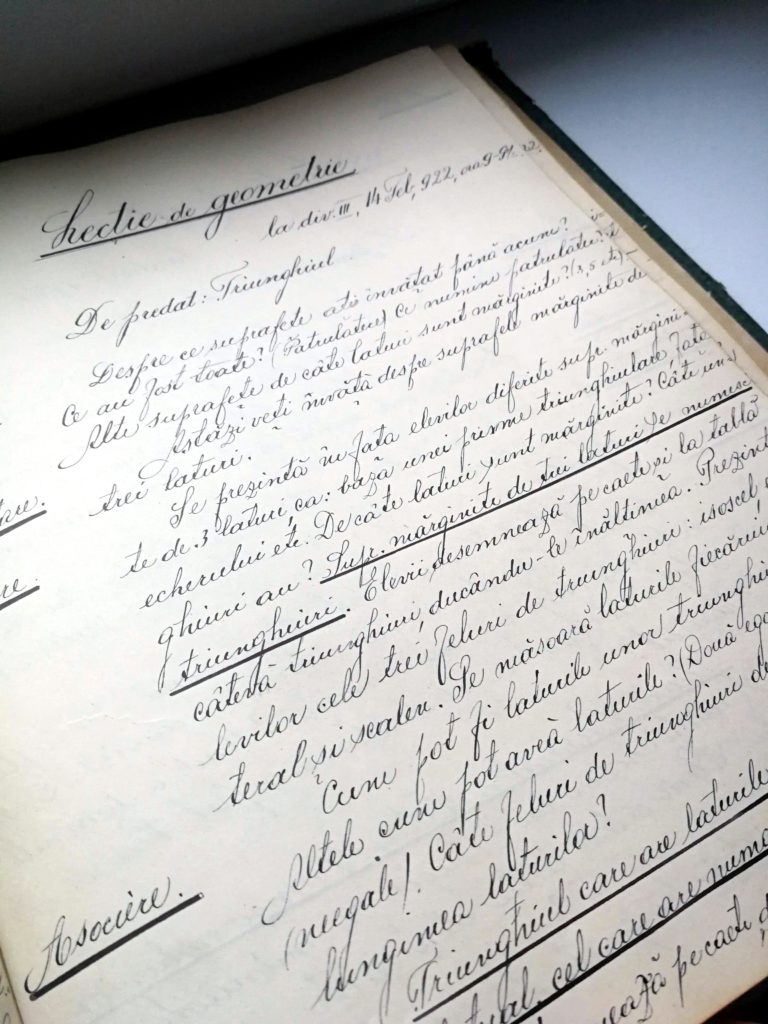 Lecție de geometrie
la div. III, 14 Feb, 922, ora 9-9½.
De predat: Triunghiul
Despre ce suprafețe ați învățat până acum?
Ce au fost toate? (Patrulatere) Ce numim patrulater?
Alte suprafețe de câte laturi sunt mărginite? (3, 5 etc) –
Astăzi veți învăță despre suprafețe mărginite de
trei laturi.
Se prezintă în fața elevilor diferite supr. mărgini-
te de 3 laturi, ca: bază unei prisme triunghiulare, fața
echerului etc. De câte laturi sunt mărginite? Câte un-
ghiuri au? Supr. mărginite de trei laturi se numesc
triunghiuri. Elevii desemnează pe caete și la tablă
câtevă triunghiuri, ducându-le înălținea. Prezint
levilor cele trei feluri de triunghiuri: isoscel,
teral și scalen. Se măsoară laturile fiecărui
Cum pot fi laturile unor triunghi
Altele cum pot aveà laturile? (Două ega
(neegale). Câte feluri de triunghiuri de
lungimea laturilor?
Asociere.
Triunghiul care are laturile
cel care are numa
pe caete